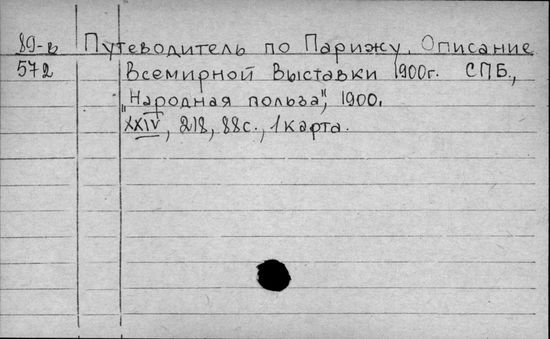 89-в Путеводитель по Парижу. Описание
572 Всемирной Выставки 1900г. СПБ.,
"Народная польза", 1900.
XXIV, 218, 88с., 1 карта.